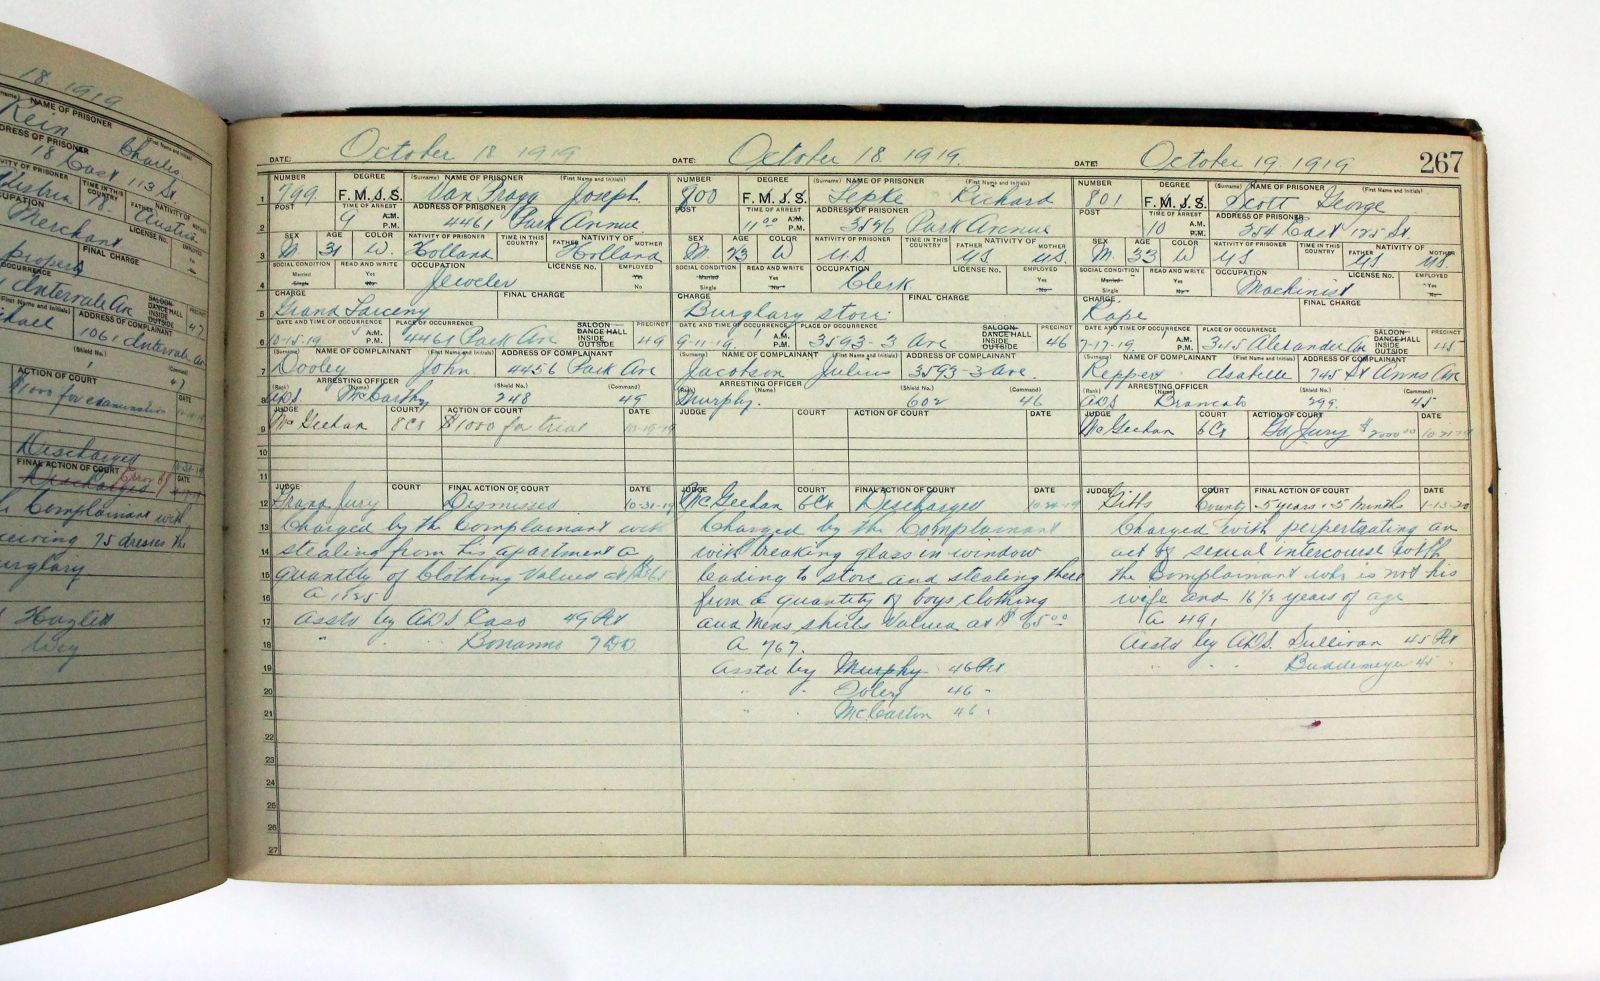 18. 1919
NAME OF PRISONER
Rein Charles
ADDRESS OF PRISONER
18 East 113 St.
Austria
TIME IN THIS COUNTRY
NATIVITY OF
FATHER Austria
LICENSE No.
Merchant
FINAL CHARGE
property
Intervale Ave
SALOON
DANCE HALL
INSIDE
OUTSIDE
PRECINCT
47
ADDRESS OF COMPLAINANT
1061 Intervale Av
(Shield No.)
(Command)
47
ACTION OF COURT
DATE
$1000 for examination
Discharged
FINAL ACTION OF COURT
DATE
Discharged Error
Complainant with
receiving 75 dresses the
burglary.
267
DATE: October 18 1919
NUMBER DEGREE (Surname) NAME OF PRISONER (First Name and Initials)
799. F. M. J. S. Van Pragg Joseph.
POST TIME OF ARREST ADDRESS OF PRISONER
9 A.M. P.M. 4461 Park Avenue
SEX AGE COLOR NATIVITY OF PRISONER TIME IN THIS COUNTRY NATIVITY OF FATHER MOTHER
M. 31 W. Holland Holland
SOCIAL CONDITION READ AND WRITE OCCUPATION LICENSE No. EMPLOYED
Married Single Yes No Jeweler Yes No
CHARGE FINAL CHARGE
Grand Larceny
DATE AND TIME OF OCCURRENCE PLACE OF OCCURRENCE SALOON DANCE HALL INSIDE OUTSIDE PRECINCT
10-15-19 5 A.M. P.M. 4461 Park Ave 49
(Surname) NAME OF COMPLAINANT (First Name and Initials) ADDRESS OF COMPLAINANT
Dooley John. 4456 Park Ave
(Rank) ARRESTING OFFICER (Name) (Shield No.) (Command)
ADS McCarthy 248 49
JUDGE COURT ACTION OF COURT DATE
McGeehan 8Cs $1000 for trial 10-19-19
JUDGE COURT FINAL ACTION OF COURT DATE
Grand Jury Dismissed 10-31-19
Charged by the Complainant with
stealing from his apartment a
quantity of Clothing Valued at $
A 1925
Asstd by ADS Caso 49 Pct
" Bonanno
DATE: October 18. 1919.
NUMBER DEGREE (Surname) NAME OF PRISONER (First Name and Initials)
800 F. M. J. S. Lepke Richard
POST TIME OF ARREST ADDRESS OF PRISONER
11 00 A.M. P.M. 3526 Park Avenue
SEX AGE COLOR NATIVITY OF PRISONER TIME IN THIS COUNTRY NATIVITY OF FATHER MOTHER
M. 23 W U.S. US US.
SOCIAL CONDITION READ AND WRITE OCCUPATION LICENSE No. EMPLOYED
Married Single Yes No Clerk Yes No
CHARGE FINAL CHARGE
Burglary store.
DATE AND TIME OF OCCURRENCE PLACE OF OCCURRENCE SALOON DANCE HALL INSIDE OUTSIDE PRECINCT
9-11-19. 1 A.M. P.M. 3593-3 Ave 46
(Surname) NAME OF COMPLAINANT (First Name and Initials) ADDRESS OF COMPLAINANT
Jacobson Julius 3593-3 Ave.
(Rank) ARRESTING OFFICER (Name) (Shield No.) (Command)
Murphy. 602 46
JUDGE COURT ACTION OF COURT DATE
JUDGE COURT FINAL ACTION OF COURT DATE
McGeehan 6Ct Discharged 10-24-19
Charged by the Complainant
with breaking glass in window
leading to store and stealing there
from a quantity of boys clothing
and Mens shirts Valued at $ 65 00
A 767.
asstd by Murphy 46 Pct
" " Foley 46 "
" " McCartin 46 "
DATE: October 19. 1919
NUMBER DEGREE (Surname) NAME OF PRISONER (First Name and Initials)
801 F. M. J. S. Scott George
POST TIME OF ARREST ADDRESS OF PRISONER
10 A.M. P.M. 254 East 125 St.
SEX AGE COLOR NATIVITY OF PRISONER TIME IN THIS COUNTRY NATIVITY OF FATHER MOTHER
M. 33 W US US US.
SOCIAL CONDITION READ AND WRITE OCCUPATION LICENSE No. EMPLOYED
Married Single Yes No Machinist Yes No
CHARGE FINAL CHARGE
Rape
DATE AND TIME OF OCCURRENCE PLACE OF OCCURRENCE SALOON DANCE HALL INSIDE OUTSIDE PRECINCT
7-17-19 A.M. P.M. 345 Alexander Av 45
(Surname) NAME OF COMPLAINANT (First Name and Initials) ADDRESS OF COMPLAINANT
Reppert Isabelle 745 St Anns Ave
(Rank) ARRESTING OFFICER (Name) (Shield No.) (Command)
ADS Brancato 299. 45
JUDGE COURT ACTION OF COURT DATE
McGeehan 6Cs Gd Jury $2000 00 10-21-19
JUDGE COURT FINAL ACTION OF COURT DATE
Gibbs County 5 years - 5 months 1-13-20
Charged with perpertrating an
act of sexual intercourse with
the Complainant who is not his
wife and 16 1/2 years of age
A 491
Asstd by ADS. Sullivan 45 Pct
" " " Buddemeyer 45 "